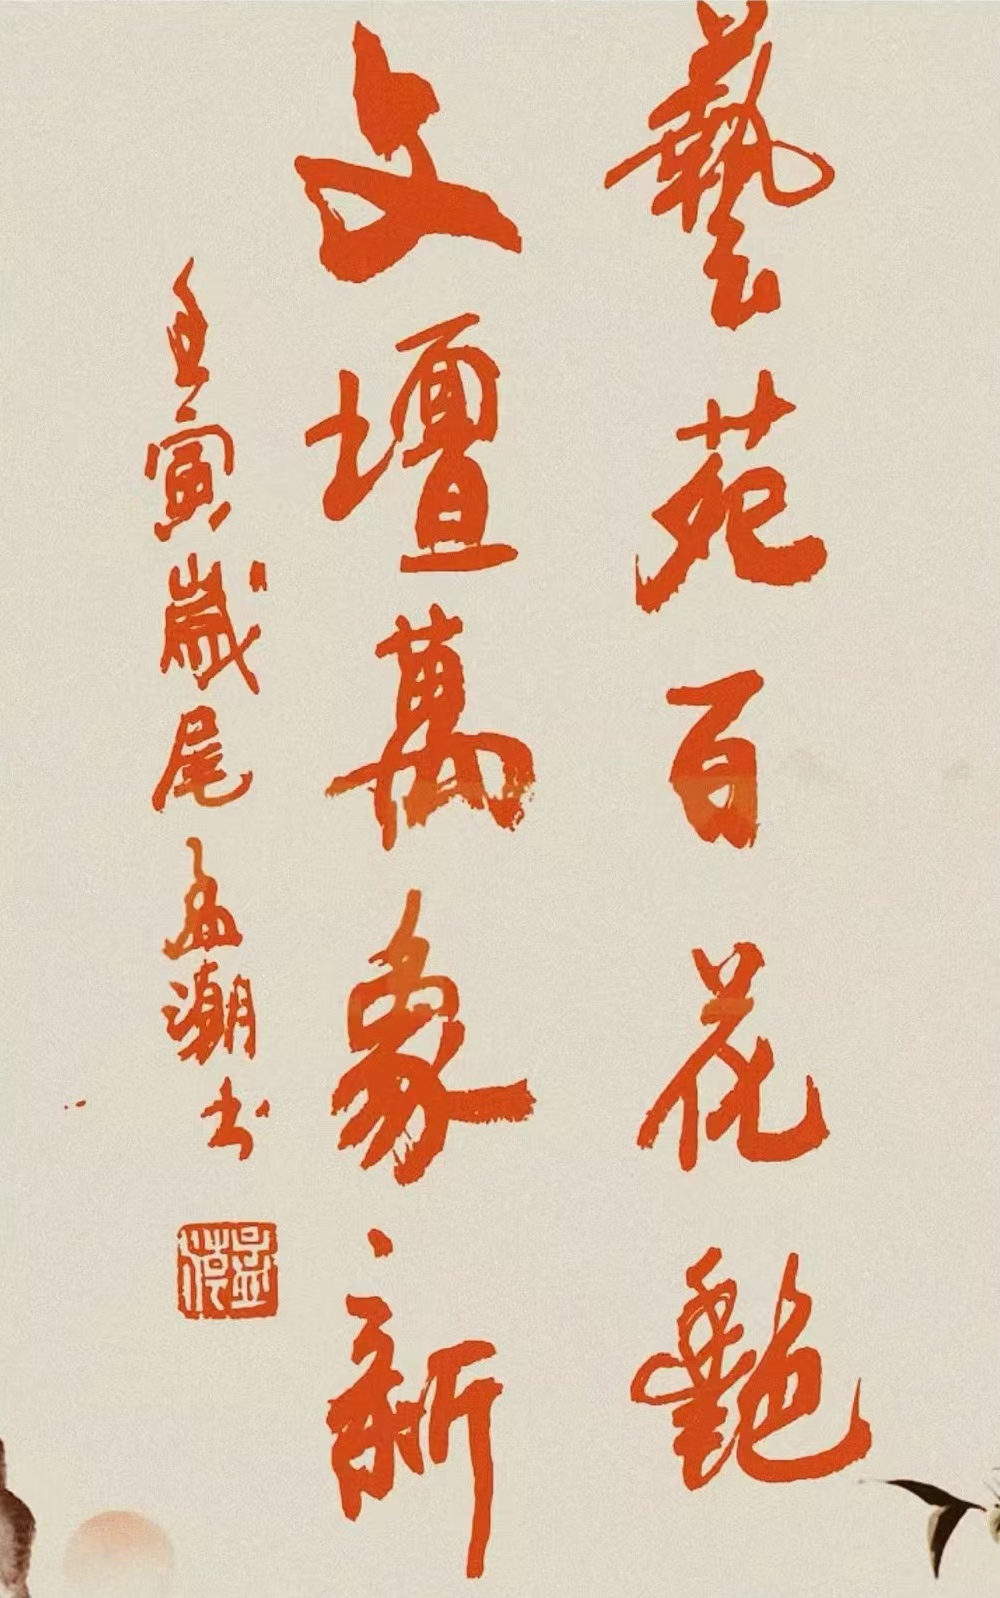 藝苑百花艷
文壇萬象新
壬寅歲尾孟潮书